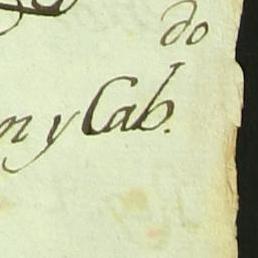 do
n y Cab.